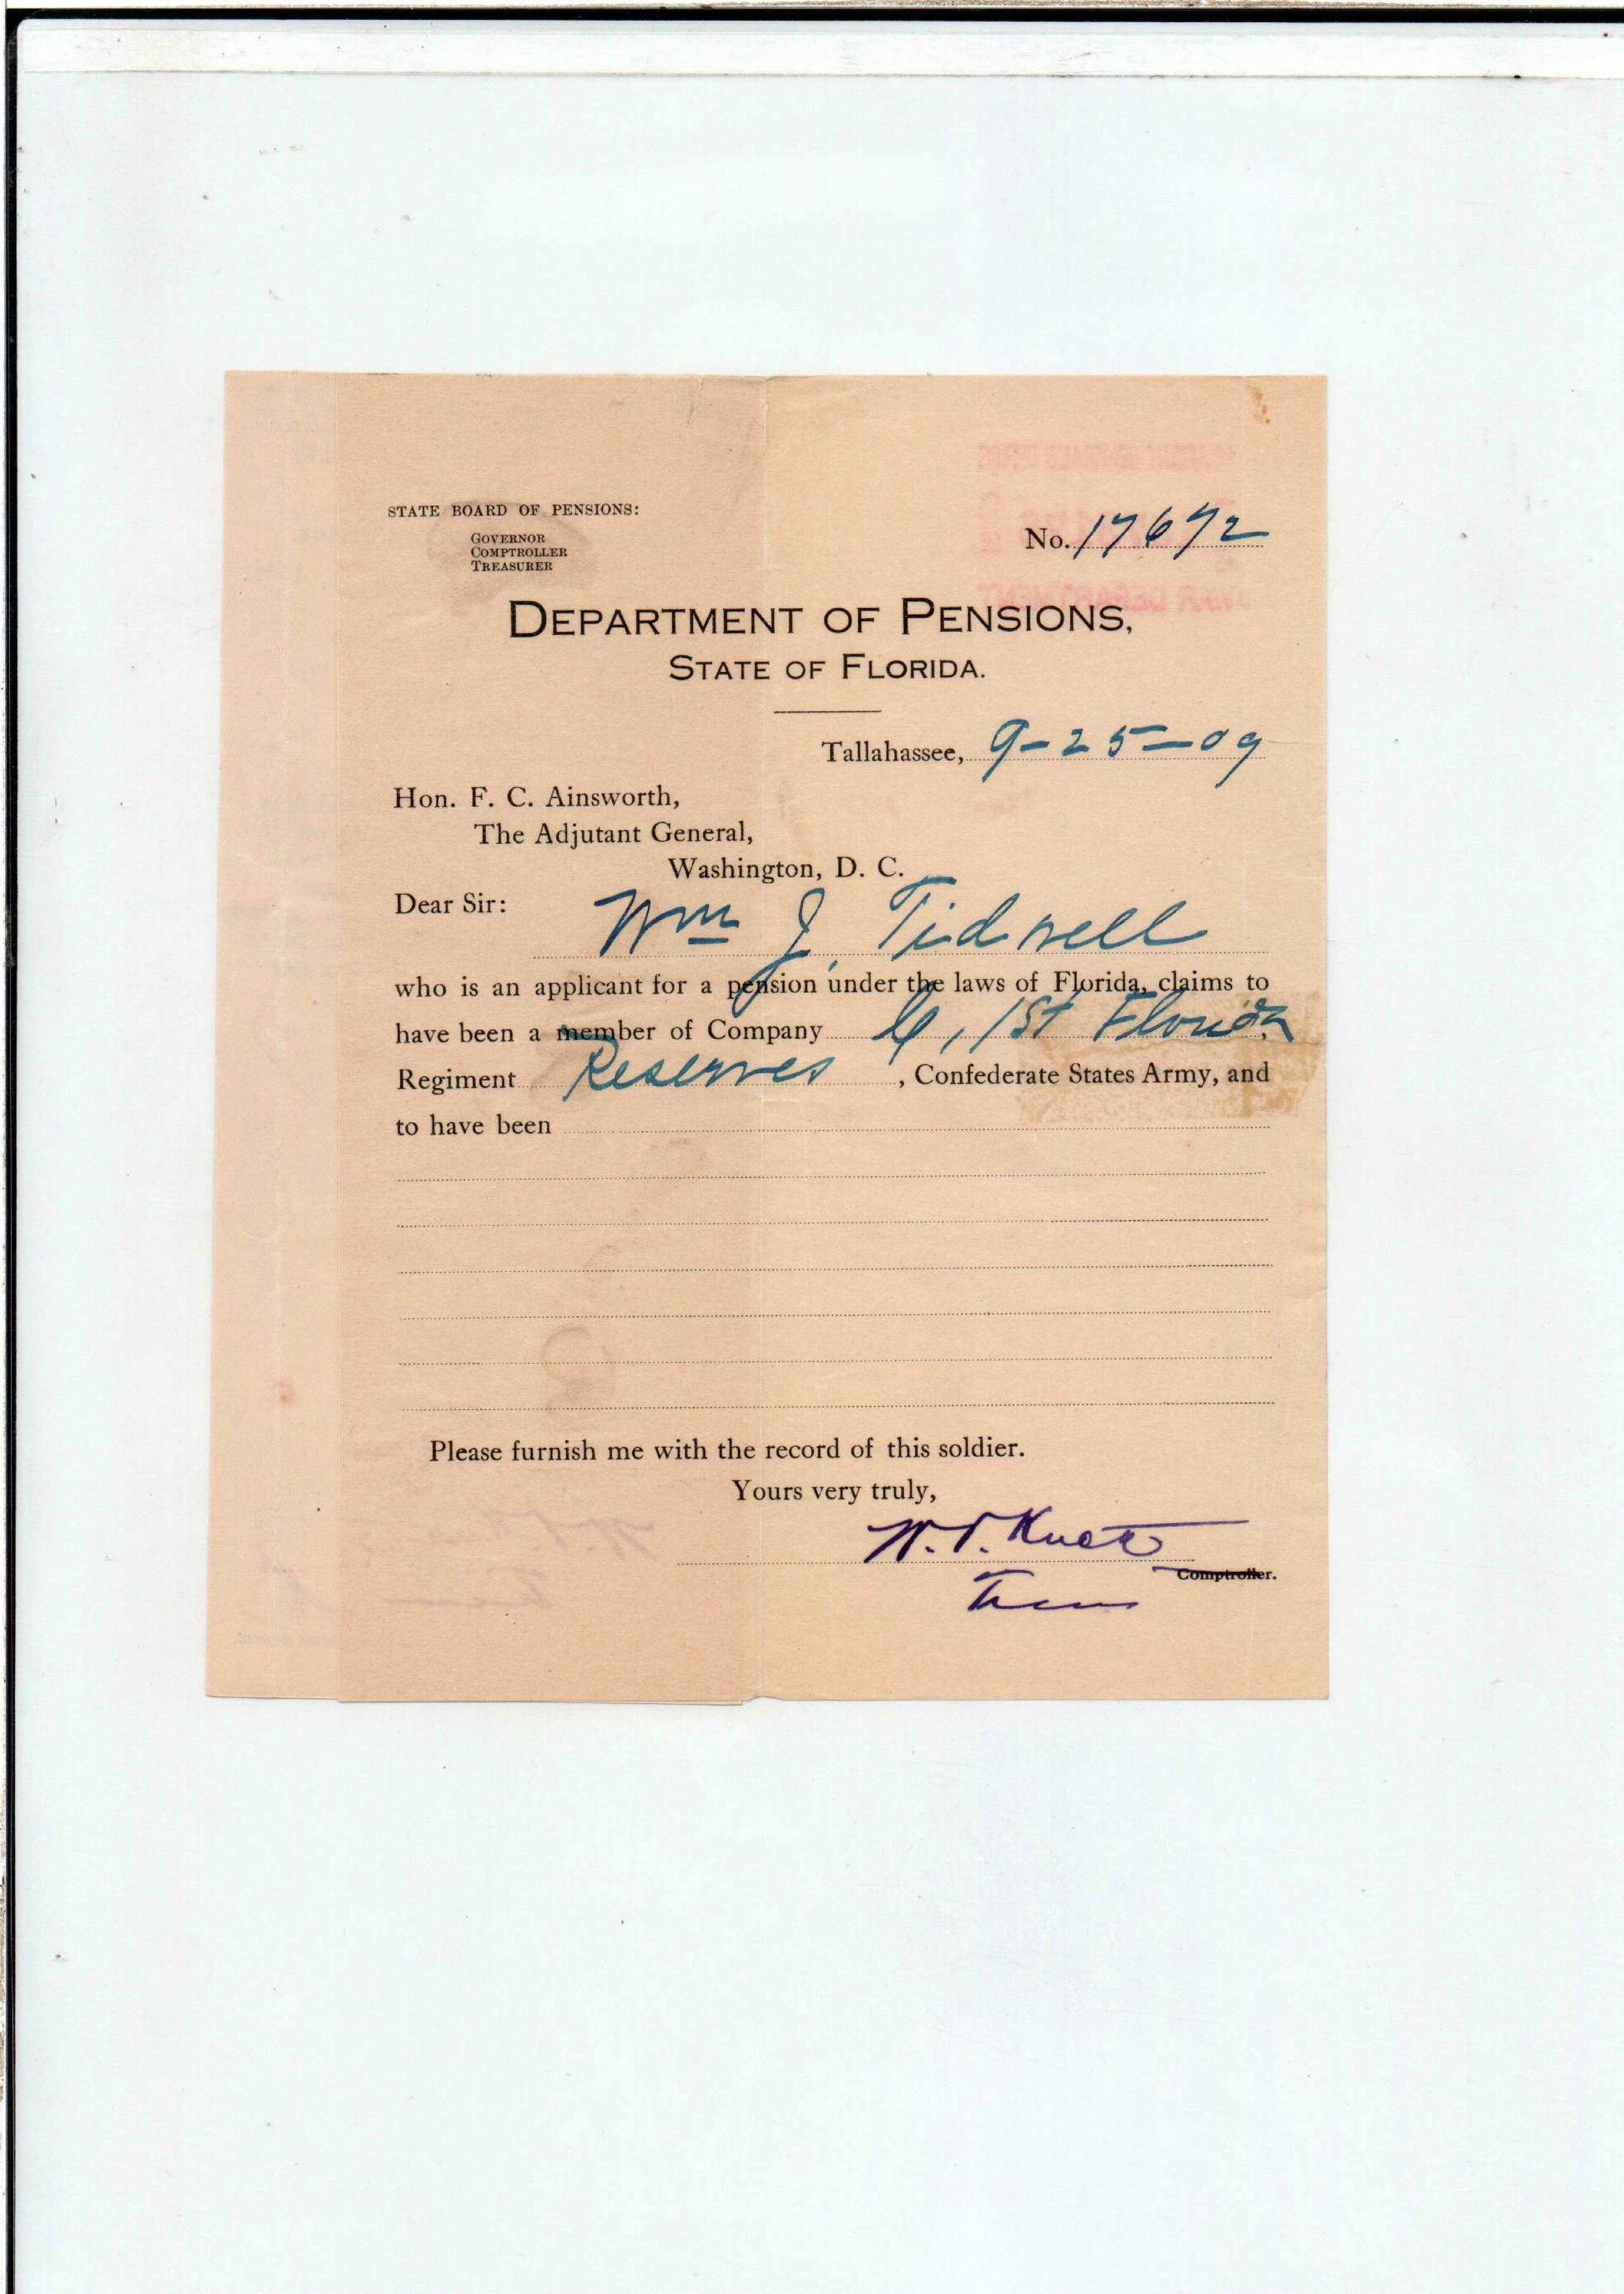 STATE BOARD OF PENSIONS:
GOVERNOR
COMPTROLLER
TREASURER
No. 17672
DEPARTMENT OF PENSIONS,
STATE OF FLORIDA.
Tallahassee, 9-25-09
Hon. F. C. Ainsworth,
The Adjutant General,
Washington, D. C.
Dear Sir:
Wm J. Tidwell
who is an applicant for a pension under the laws of Florida, claims to
have been a member of Company C, 1st Florida
Regiment Reserves, Confederate States Army, and
to have been
Please furnish me with the record of this soldier.
Yours very truly,
W. V. Knott
Comptroller.
Treas